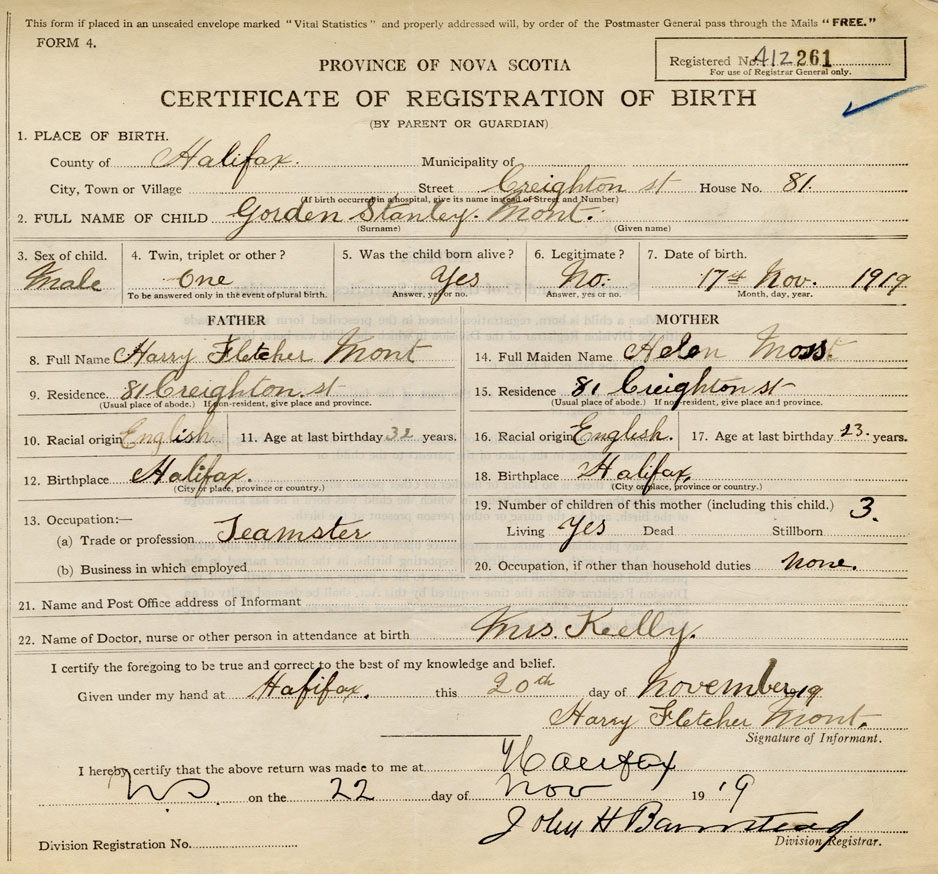 This form if placed in an unsealed envelope marked "Vital Statistics" and properly addressed will, by order of the Postmaster General pass through the Mails "FREE."
FORM 4.
Registered No. A12 261
For use of Registrar General only.
PROVINCE OF NOVA SCOTIA
CERTIFICATE OF REGISTRATION OF BIRTH
(BY PARENT OR GUARDIAN)
1. PLACE OF BIRTH.
County of Halifax. Municipality of
City, Town or Village Street Creighton st House No. 81.
(If birth occurred in a hospital, give its name instead of Street and Number)
2. FULL NAME OF CHILD Gorden Stanley. Mont.
(Surname) (Given name)
3. Sex of child. 4. Twin, triplet or other? 5. Was the child born alive? 6. Legitimate? 7. Date of birth.
Male One Yes No. 17th Nov. 1919
To be answered only in the event of plural birth. Answer, yes or no. Answer, yes or no. Month, day, year.
FATHER MOTHER
8. Full Name Harry Fletcher Mont 14. Full Maiden Name Helen Moss.
9. Residence 81 Creighton st 15. Residence 81 Creighton st
(Usual place of abode.) If non-resident, give place and province. (Usual place of abode.) If non-resident, give place and province.
10. Racial origin English. 11. Age at last birthday 32 years. 16. Racial origin English. 17. Age at last birthday 23. years.
12. Birthplace Halifax. 18. Birthplace Halifax,
(City or place, province or country.) (City or place, province or country.)
13. Occupation:— 19. Number of children of this mother (including this child.) 3.
(a) Trade or profession Teamster Living Yes Dead Stillborn
(b) Business in which employed 20. Occupation, if other than household duties None.
21. Name and Post Office address of Informant
22. Name of Doctor, nurse or other person in attendance at birth Mrs. Keelly.
I certify the foregoing to be true and correct to the best of my knowledge and belief.
Given under my hand at Halifax. this 20th day of November 19
Harry Fletcher Mont.
Signature of Informant.
I hereby certify that the above return was made to me at Halifax
N.S. on the 22 day of Nov 19 19
John H Barnstead
Division Registration No. Division Registrar.